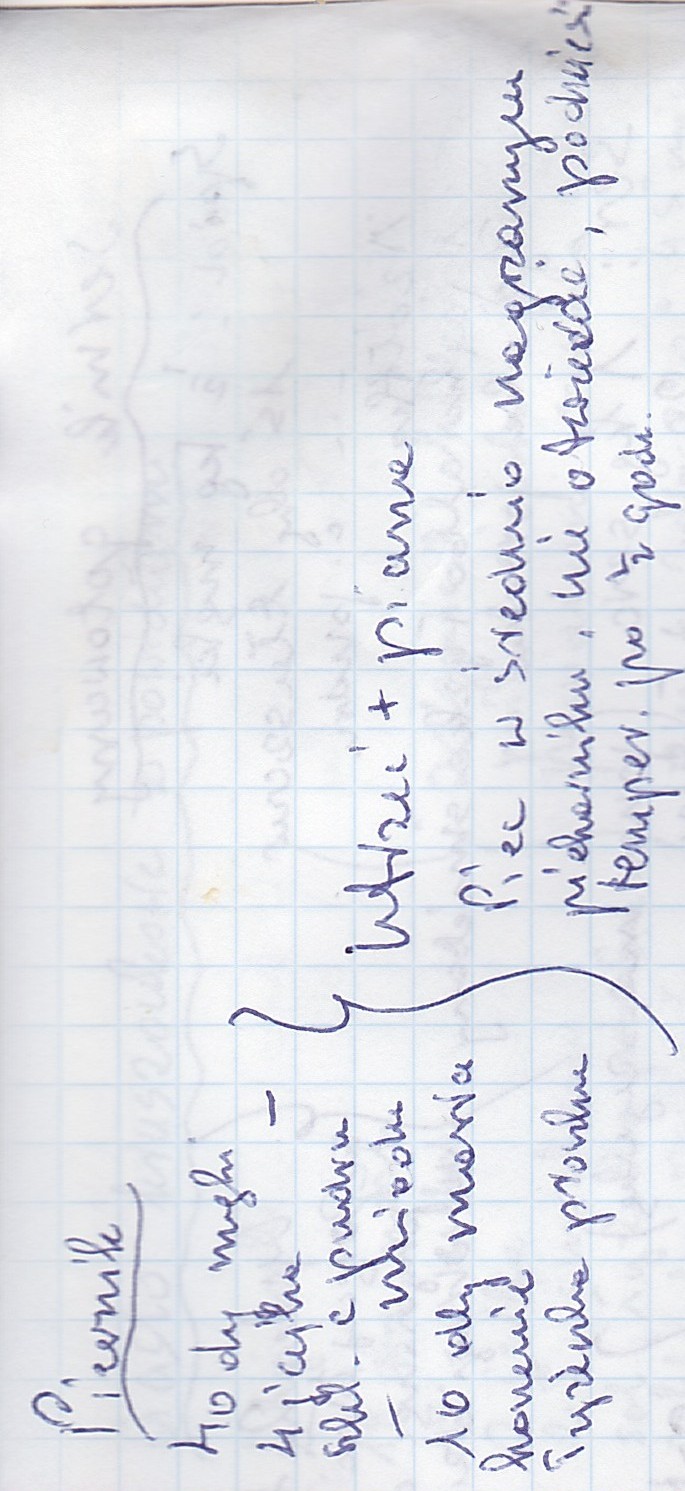 Piernik
40 dkg mąki
4 jajka —
szkl. c pudru
— miodu
10 dkg masła
korzenie
łyżeczka proszku
Utrzeć + piana
Piec w średnio nagrzanym
piekarniku, nie otwierać, podnieść
temper. po ½ godz.